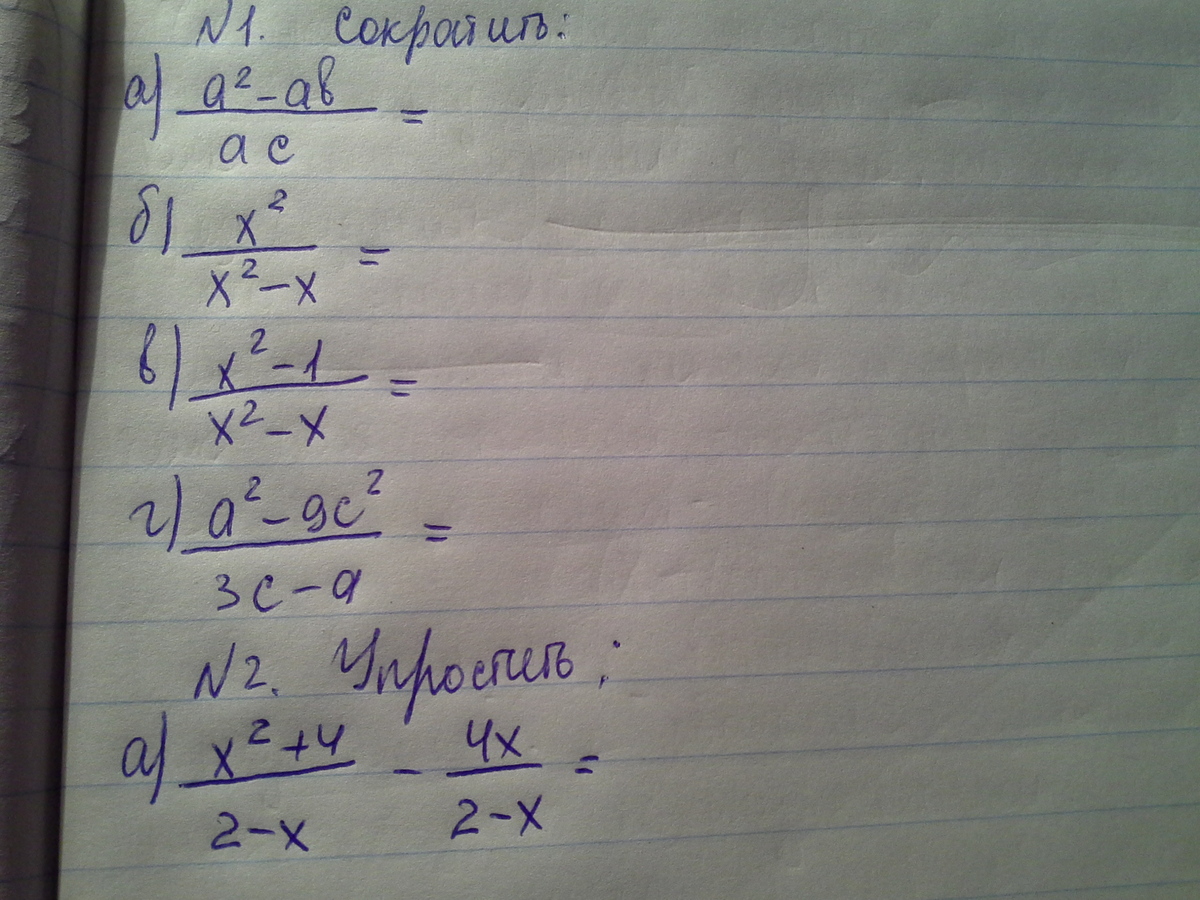 N1. Сократить:
а) (a² - ab) / (ac) =
б) x² / (x² - x) =
в) (x² - 1) / (x² - x) =
г) (a² - 9c²) / (3c - a) =
N2. Упростить:
а) (x² + 4) / (2 - x) - 4x / (2 - x) =